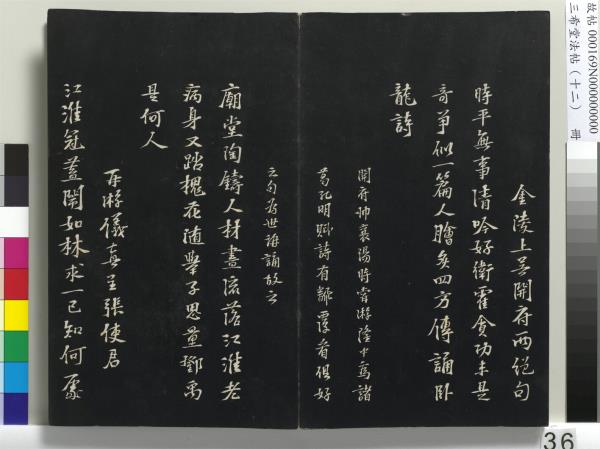 故帖 000169N000000000
三希堂法帖(十二) 冊
金陵上吳開府兩絕句
時平無事清吟好衛霍貪功未是
奇爭似一篇人膾炙四方傳誦臥
龍詩
開府帥襄陽時嘗游隆中爲諸
葛孔明賦詩有翻覆看俱好
之句爲世諷誦故云
廟堂陶鑄人材盡流落江淮老
病身又踏槐花隨舉子思量鄧禹
是何人
再游儀真呈張使君
江淮冠蓋閙如林求一己知何處
36